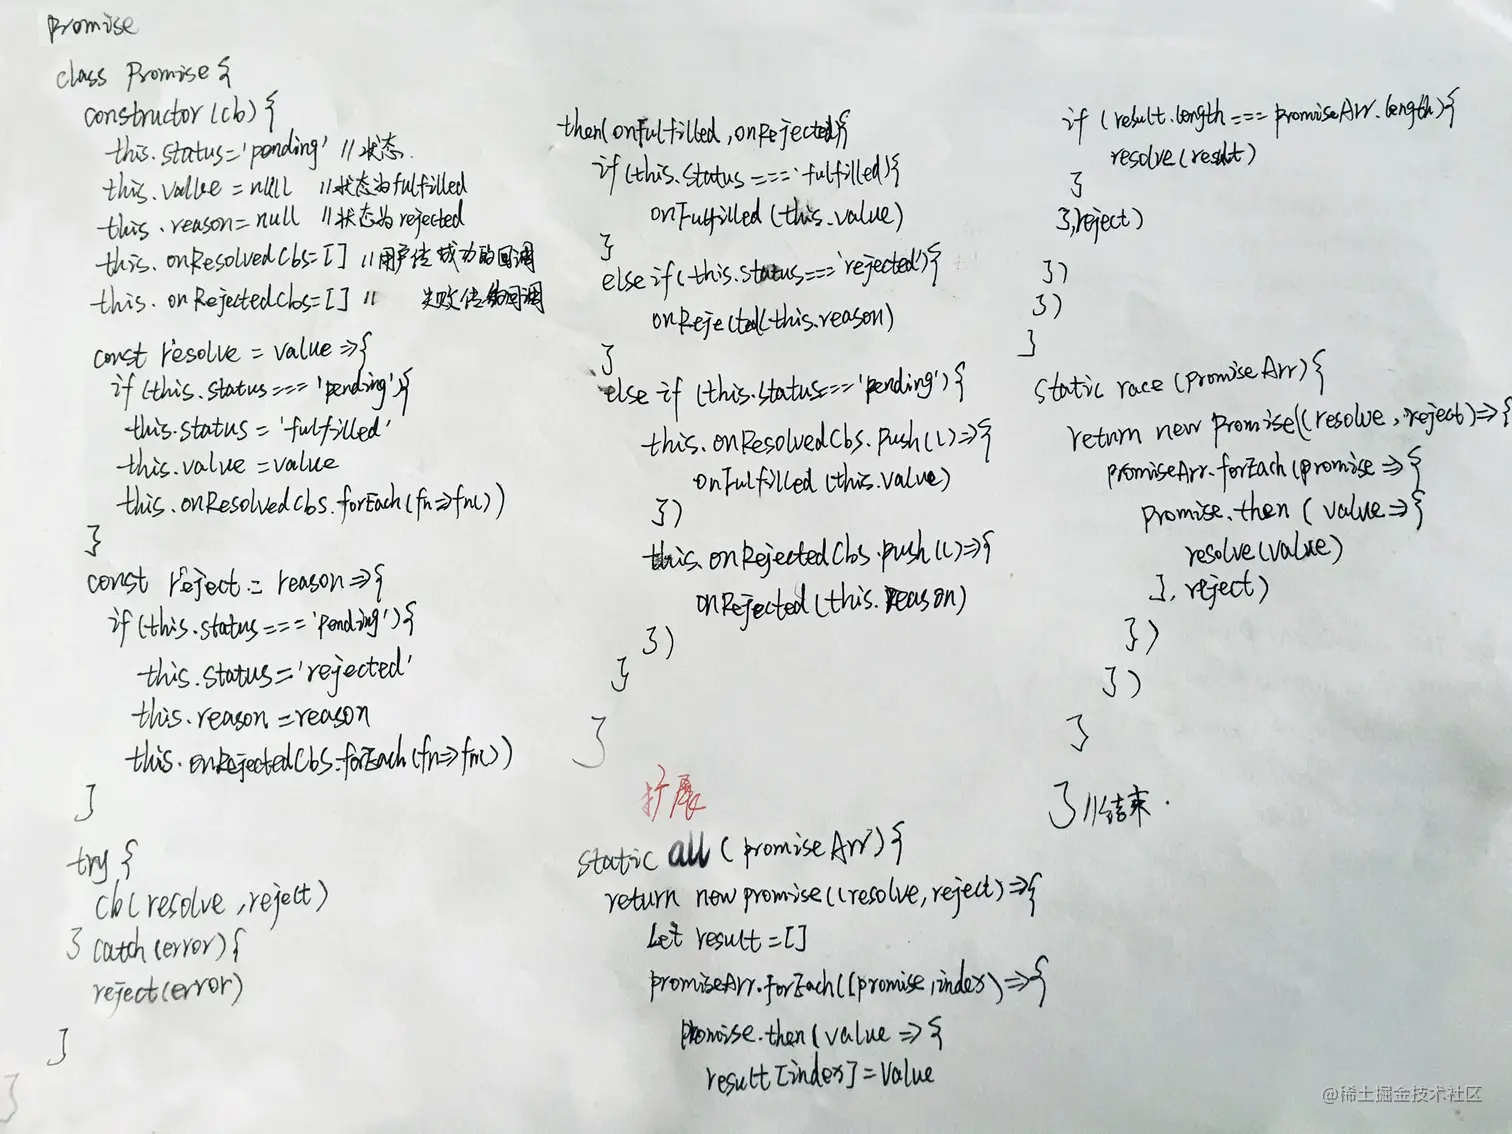 Promise
class Promise {
constructor(cb) {
this.status='pending' //状态.
this.value = null //状态为fulfilled
this.reason=null //状态为rejected
this.onResolvedCbs=[] //用户传成功的回调
this.onRejectedCbs=[] // 失败传的回调
const resolve = value =>{
if(this.status === 'pending'){
this.status = 'fulfilled'
this.value =value
this.onResolvedCbs.forEach(fn=>fn())
}
const reject = reason =>{
if(this.status === 'pending'){
this.status='rejected'
this.reason =reason
this.onRejectedCbs.forEach(fn=>fn())
}
try {
cb(resolve ,reject)
} catch(error){
reject(error)
}
}
then(onFulfilled,onRejected){
if(this.status === 'fulfilled'){
onFulfilled(this.value)
}
else if(this.status==='rejected'){
onRejected(this.reason)
}
else if (this.status==='pending'){
this.onResolvedCbs.push(()=>{
onFulfilled(this.value)
})
this.onRejectedCbs.push(()=>{
onRejected(this.reason)
})
}
}
扩展
static all (promiseArr){
return new promise((resolve,reject)=>{
Let result=[]
promiseArr.forEach((promise,index)=>{
promise.then(value =>{
result[index]=value
if (result.length === promiseArr.length){
resolve(result)
}
},reject)
})
})
}
static race (promiseArr){
return new promise((resolve,reject)=>{
promiseArr.forEach(promise =>{
promise.then (value=>{
resolve(value)
}, reject)
})
})
}
} //结束.
@稀土掘金技术社区